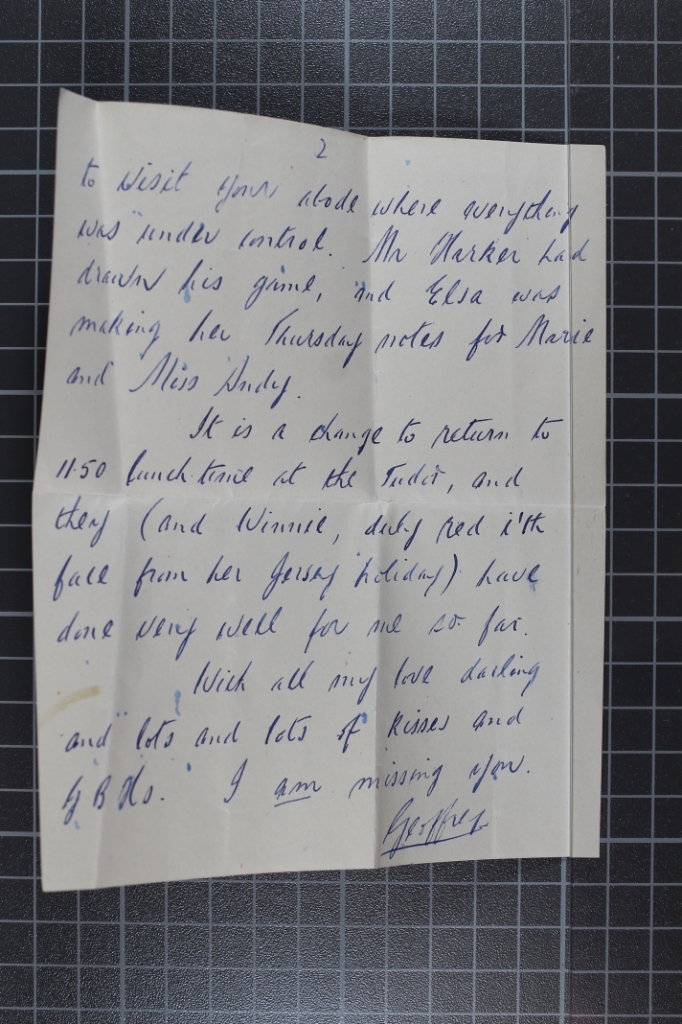 2
to visit your abode where everything
was under control. Mr Harker had
drawn his game, and Elsa was
making her Thursday notes for Marie
and Miss Andy.
It is a change to return to
11.50 lunch-time at the Tudor, and
they (and Winnie, duly red i'th
face from her Jersey holiday) have
done very well for me so far.
With all my love darling
and lots and lots of kisses and
G B Hs. I am missing you.
Geoffrey